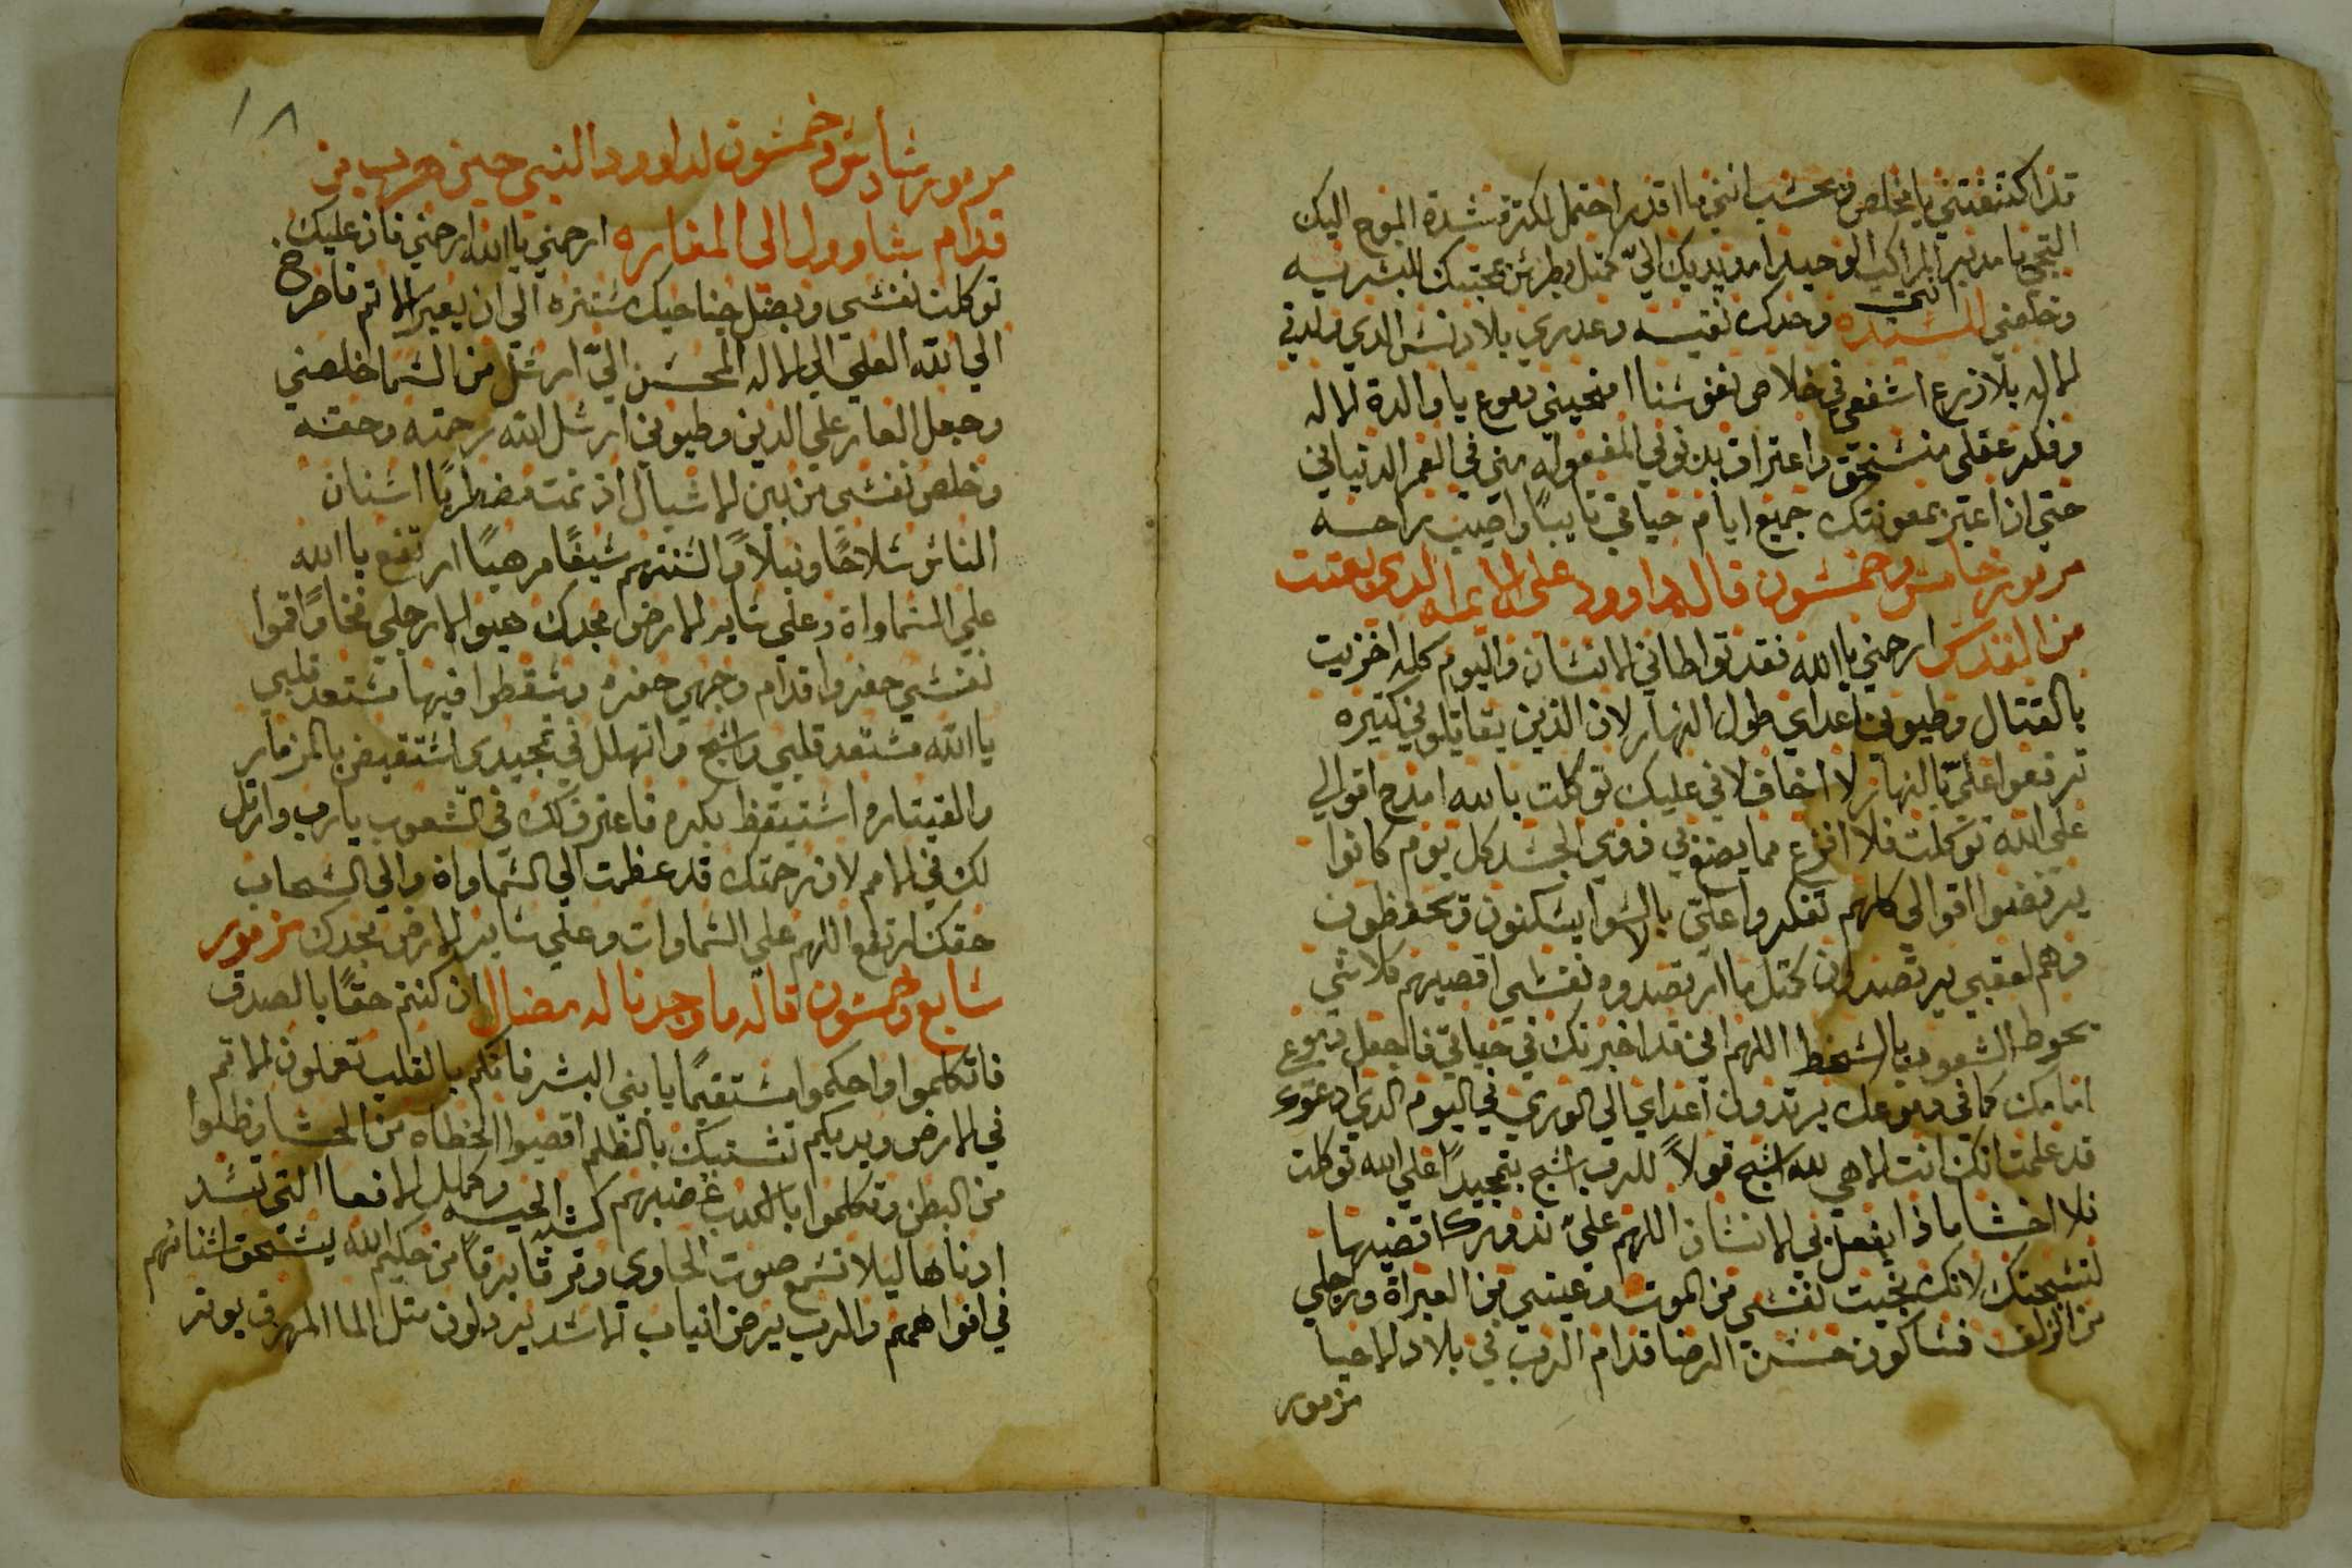 قد اكتنفتني يا مخلص وبحسب انني ما اقدر احتمل لكثرة شدة الموج اليك
التجي يا مدبر المراكب الوحيد امدد يديك اليّ كمثل بطرس بمحبتك البشريه
وخلصني السـتـيده انتي وحدك نقيه وعدري بلا دنس الدي ولدتي
الاله بلا زرع اشفعي في خلاص نفوسنا امنحيني دموع يا والدة الاله
وفكر عقلي منسحق واعتراف بدنوبي المفعوله مني في العمر الدنياني
حتي ان اعبر بمعونتك جميع ايام حياتي تايبًا واصيب راحه
مزمور خامس وخمسون قاله داوود علي الامه الدي بعدت
من القدس ارحمني يا الله فقد تواطاني الانسان واليوم كله اخزيت
بالقتال وطيوني اعداي طول النهار لان الذين يقاتلوني كتيره
ترفعوا عليّ بالنهار لا اخاف لاني عليك توكلت بالله امدح اقوالي
علي الله توكلت فلا افزع مما يصنع بي ذوي الجسد كل يوم كانوا
يرفضوا اقوالي كلهم تفكروا عليّ بالاسوا يسكنون ويحفظون
وهم لعقبي يرتصدون كمثل ما ارتصدوه نفسي اقصيهم كلا شي
بحوط الشعوب بالسخط اللهم اني قد اخبرتك في حياتي فاجعل دموع
امامك كما في وعدك يرتدون اعداي الي الوري في اليوم الدي ادعوك
قد علمت انك انت الاهي لله اسبح قولاً للرب اسبح بتمجيدًا علي الله توكلت
فلا اخشا ماذا يفعل بي الانسان اللهم عليّ ندورك اقضيها
لتسبحتك لانك نجيت نفسي من الموت وعيني من العبراة ورجلي
من الزلف فساكون حسن الرضا قدام الرب في بلاد الاحيا
مزمور
١٨
مزمور سادس وخمسون لداوود النبي حين هرب من
قدام شاوول الي المغاره ارحمني يا الله ارحمني فان عليك
توكلت نفسي وبضل جناحيك ستتره الي ان يعبر الاتم فاصرخ
الي الله العلي الي الاله المحسن اليّ ارسل من السما خلصني
وجعل العار علي الدين وطيوني ارسل الله رحمته وحقه
وخلص نفسي من بين الاشبال اذ نمت مضطربًا اسنان
الناس سلاحًا ونبلاً والسنتهم سيفًا مرهبًا ارتفع يا الله
علي السماواة وعلي ساير الارض مجدك هيوا لارجلي فخاخًا واقموا
نفسي حفروا قدام وجهي حفره وسقطوا فيها مستعد قلبي
يا الله مستعد قلبي واسبح واتهلل في تمجيدي استقيض بالمزمار
والقيتاره استيقظ بكره فاعترف لك في الشعوب يا رب وارتل
لك في الامم لان رحمتك قد عظمت الي السماواة والي السحاب
حقك ارتفع اللهم علي السماوات وعلي ساير الارض مجدك مزمور
سابع وخمسون قاله ما وجدنا له مضال ان كنتم حقًا بالصدق
فاتكلموا واحكموا مستقيمًا يا بني البشر فانكم بالقلب تعملون الاتم
في الارض ويديكم تشتبك بالظلم اقصيوا الخطاه من الحشا وظلوا
من البطن وتكلموا بالكدب غضبهم كشبه الحيه وكمثل الافعا التي تسد
ادناها ليلا تسمع صوت الحاوي وترقا برقًا من حكيم الله يستحق اسنانهم
في افواههم والرب يرض انياب الاسد يرذلون مثل الما المهرق يوتر